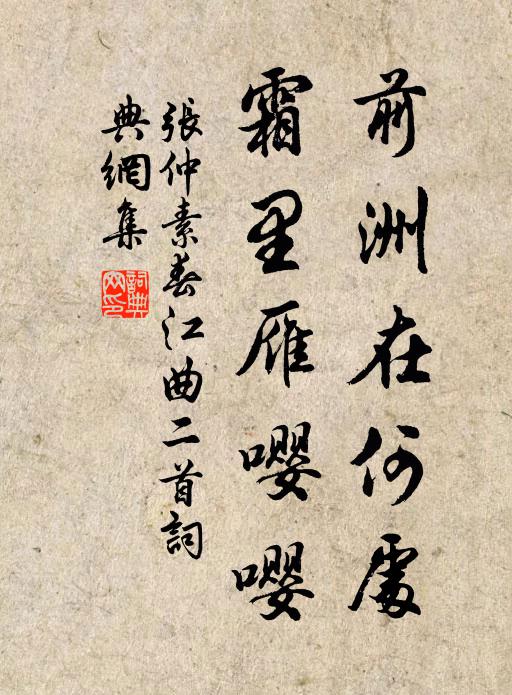 前洲在何處
霜里雁嚶嚶
張仲素春江曲二首詞
典網集
詞典
网印